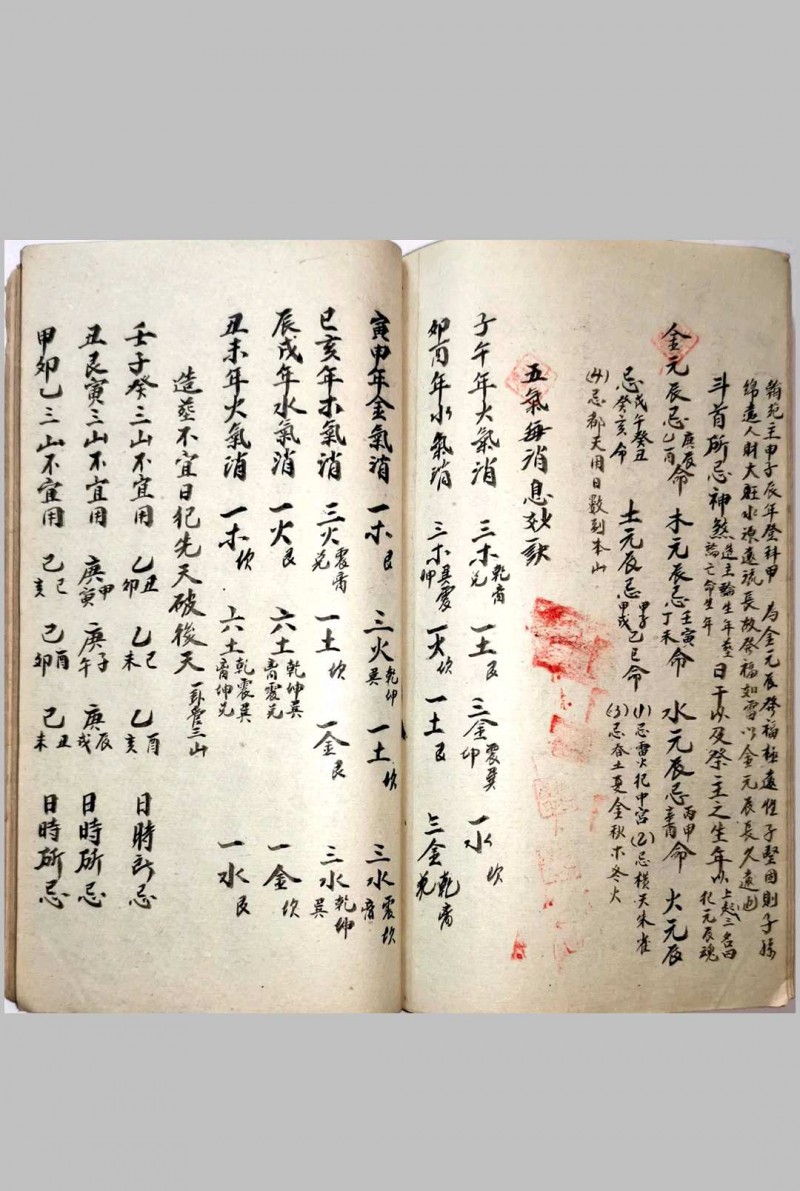 翰苑主甲子辰年登科甲 為金元辰發福極遠性子堅固則子孫
綿遠人財大旺水源遠流長故發福如雷以金元辰長久遠也
斗首所忌神煞造主論生年葬論亡命生年日干以及祭主之生年以上起三名曰犯元辰魂
金元辰忌庚辰乙酉命 木元辰忌壬寅丁未命 水元辰忌丙申辛酉命 火元辰
忌戊午癸丑癸亥命 土元辰忌甲子甲戌乙巳命 (1)忌雷火犯中宮 (2)忌橫天朱雀
(4)忌都天用日數到本山 (3)忌春土夏金秋木冬火
五氣每消息妙訣
子午年火氣消 三木乾兌 一土艮 三金震巽坤 一水坎
卯酉年水氣消 三木巽震坤 一火坎 一土艮 三金乾兌
寅申年金氣消 一木艮 三火乾坤巽 一土坎 三水震坎
巳亥年木氣消 三火震兌 一土坎 一金艮 三水乾坤巽
辰戌年水氣消 一火艮 六土乾坤巽震兌 一金坎
丑未年火氣消 一木坎 六土乾震巽坤兌 一水艮
造葬不宜日犯先天破後天 一卦管三山
壬子癸三山不宜用 乙丑卯 乙巳未 乙酉亥 日時所忌
丑艮寅三山不宜用 庚申寅 庚子午 庚辰戌 日時所忌
甲卯乙三山不宜用 己巳亥 己酉卯 己丑未 日時所忌